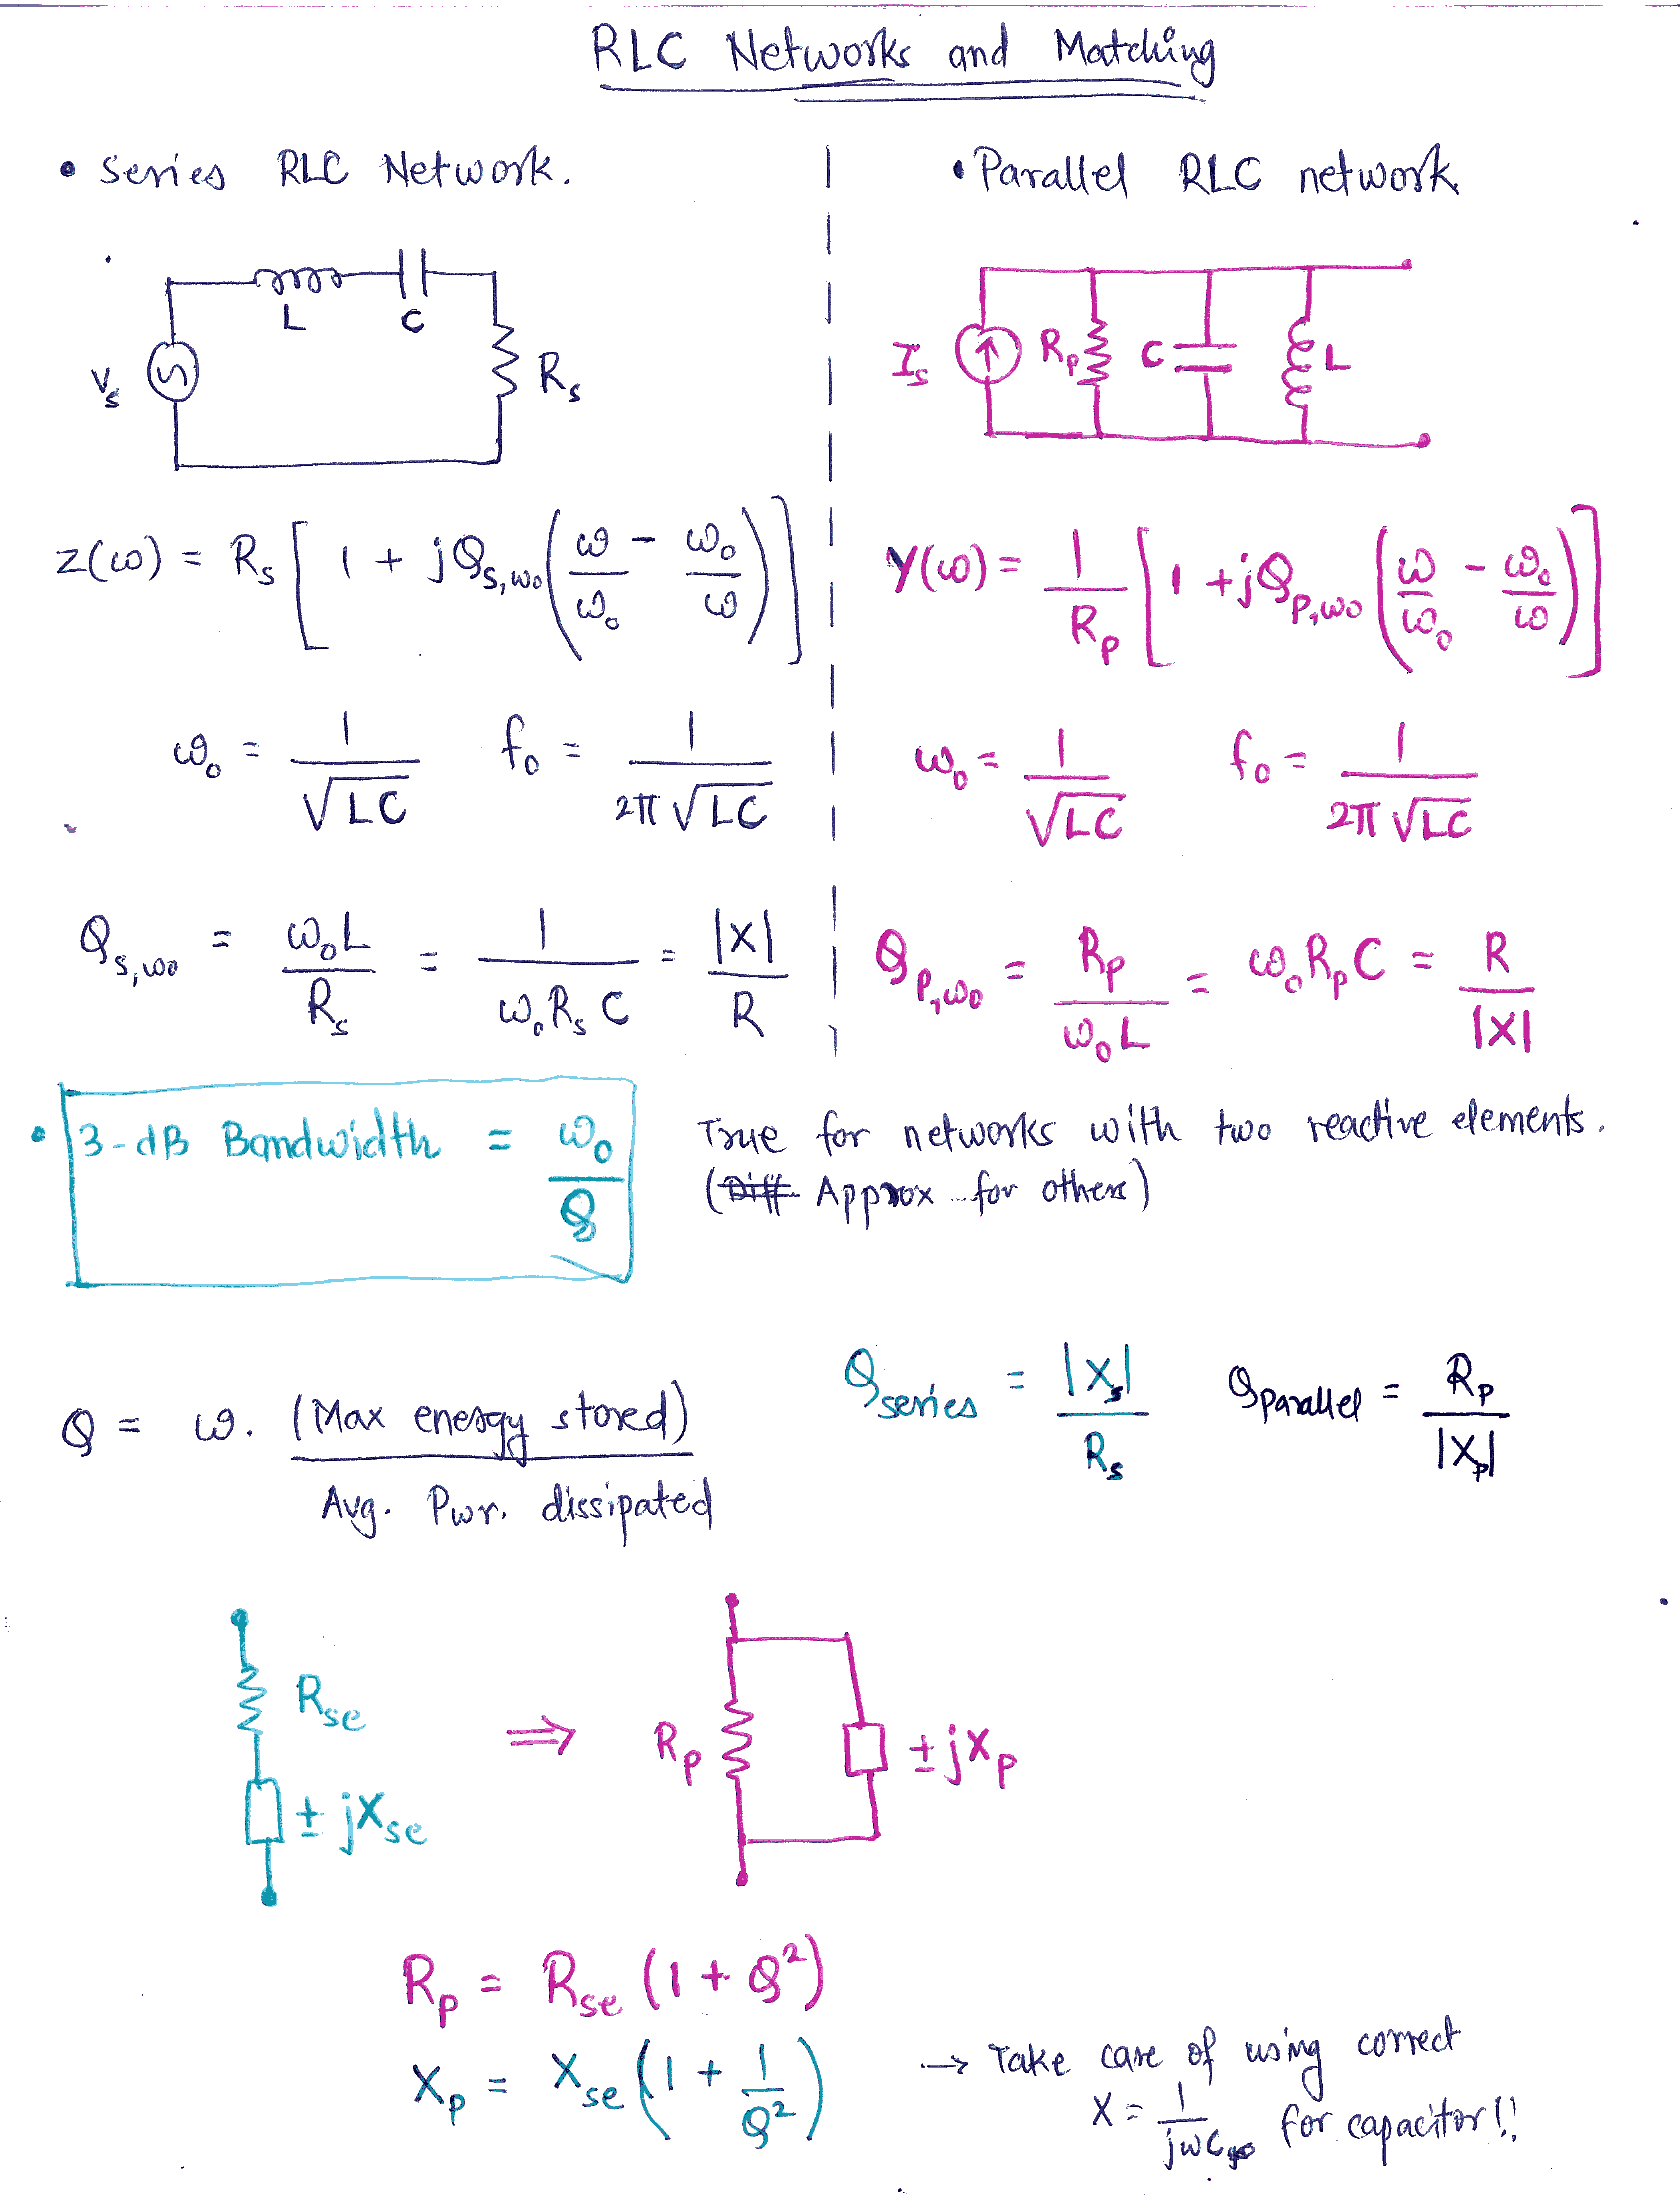 RLC Networks and Matching
• Series RLC Network.
L C
V_s
R_s
z(ω) = R_s [ 1 + jQ_{s,ω0} ( ω/ω_0 − ω_0/ω ) ]
ω_0 = 1/√LC f_0 = 1/2π√LC
Q_{s,ω0} = ω_0L/R_s = 1/ω_0R_sC = |X|/R
• Parallel RLC network
I_s R_p C L
Y(ω) = 1/R_p [ 1 + jQ_{p,ω0} ( ω/ω_0 − ω_0/ω ) ]
ω_0 = 1/√LC f_0 = 1/2π√LC
Q_{p,ω0} = R_p/ω_0L = ω_0R_pC = R/|X|
• 3-dB Bandwidth = ω_0/Q
True for networks with two reactive elements.
(Diff Approx for others)
Q = ω. (Max energy stored)/Avg. Pwr. dissipated
Q_series = |X_s|/R_s Q_Parallel = R_p/|X_p|
R_se
± jX_se
⇒
R_p ± jX_p
R_p = R_se (1 + Q²)
X_p = X_se (1 + 1/Q²)
→ Take care of using correct
X = 1/jωC for capacitor!!